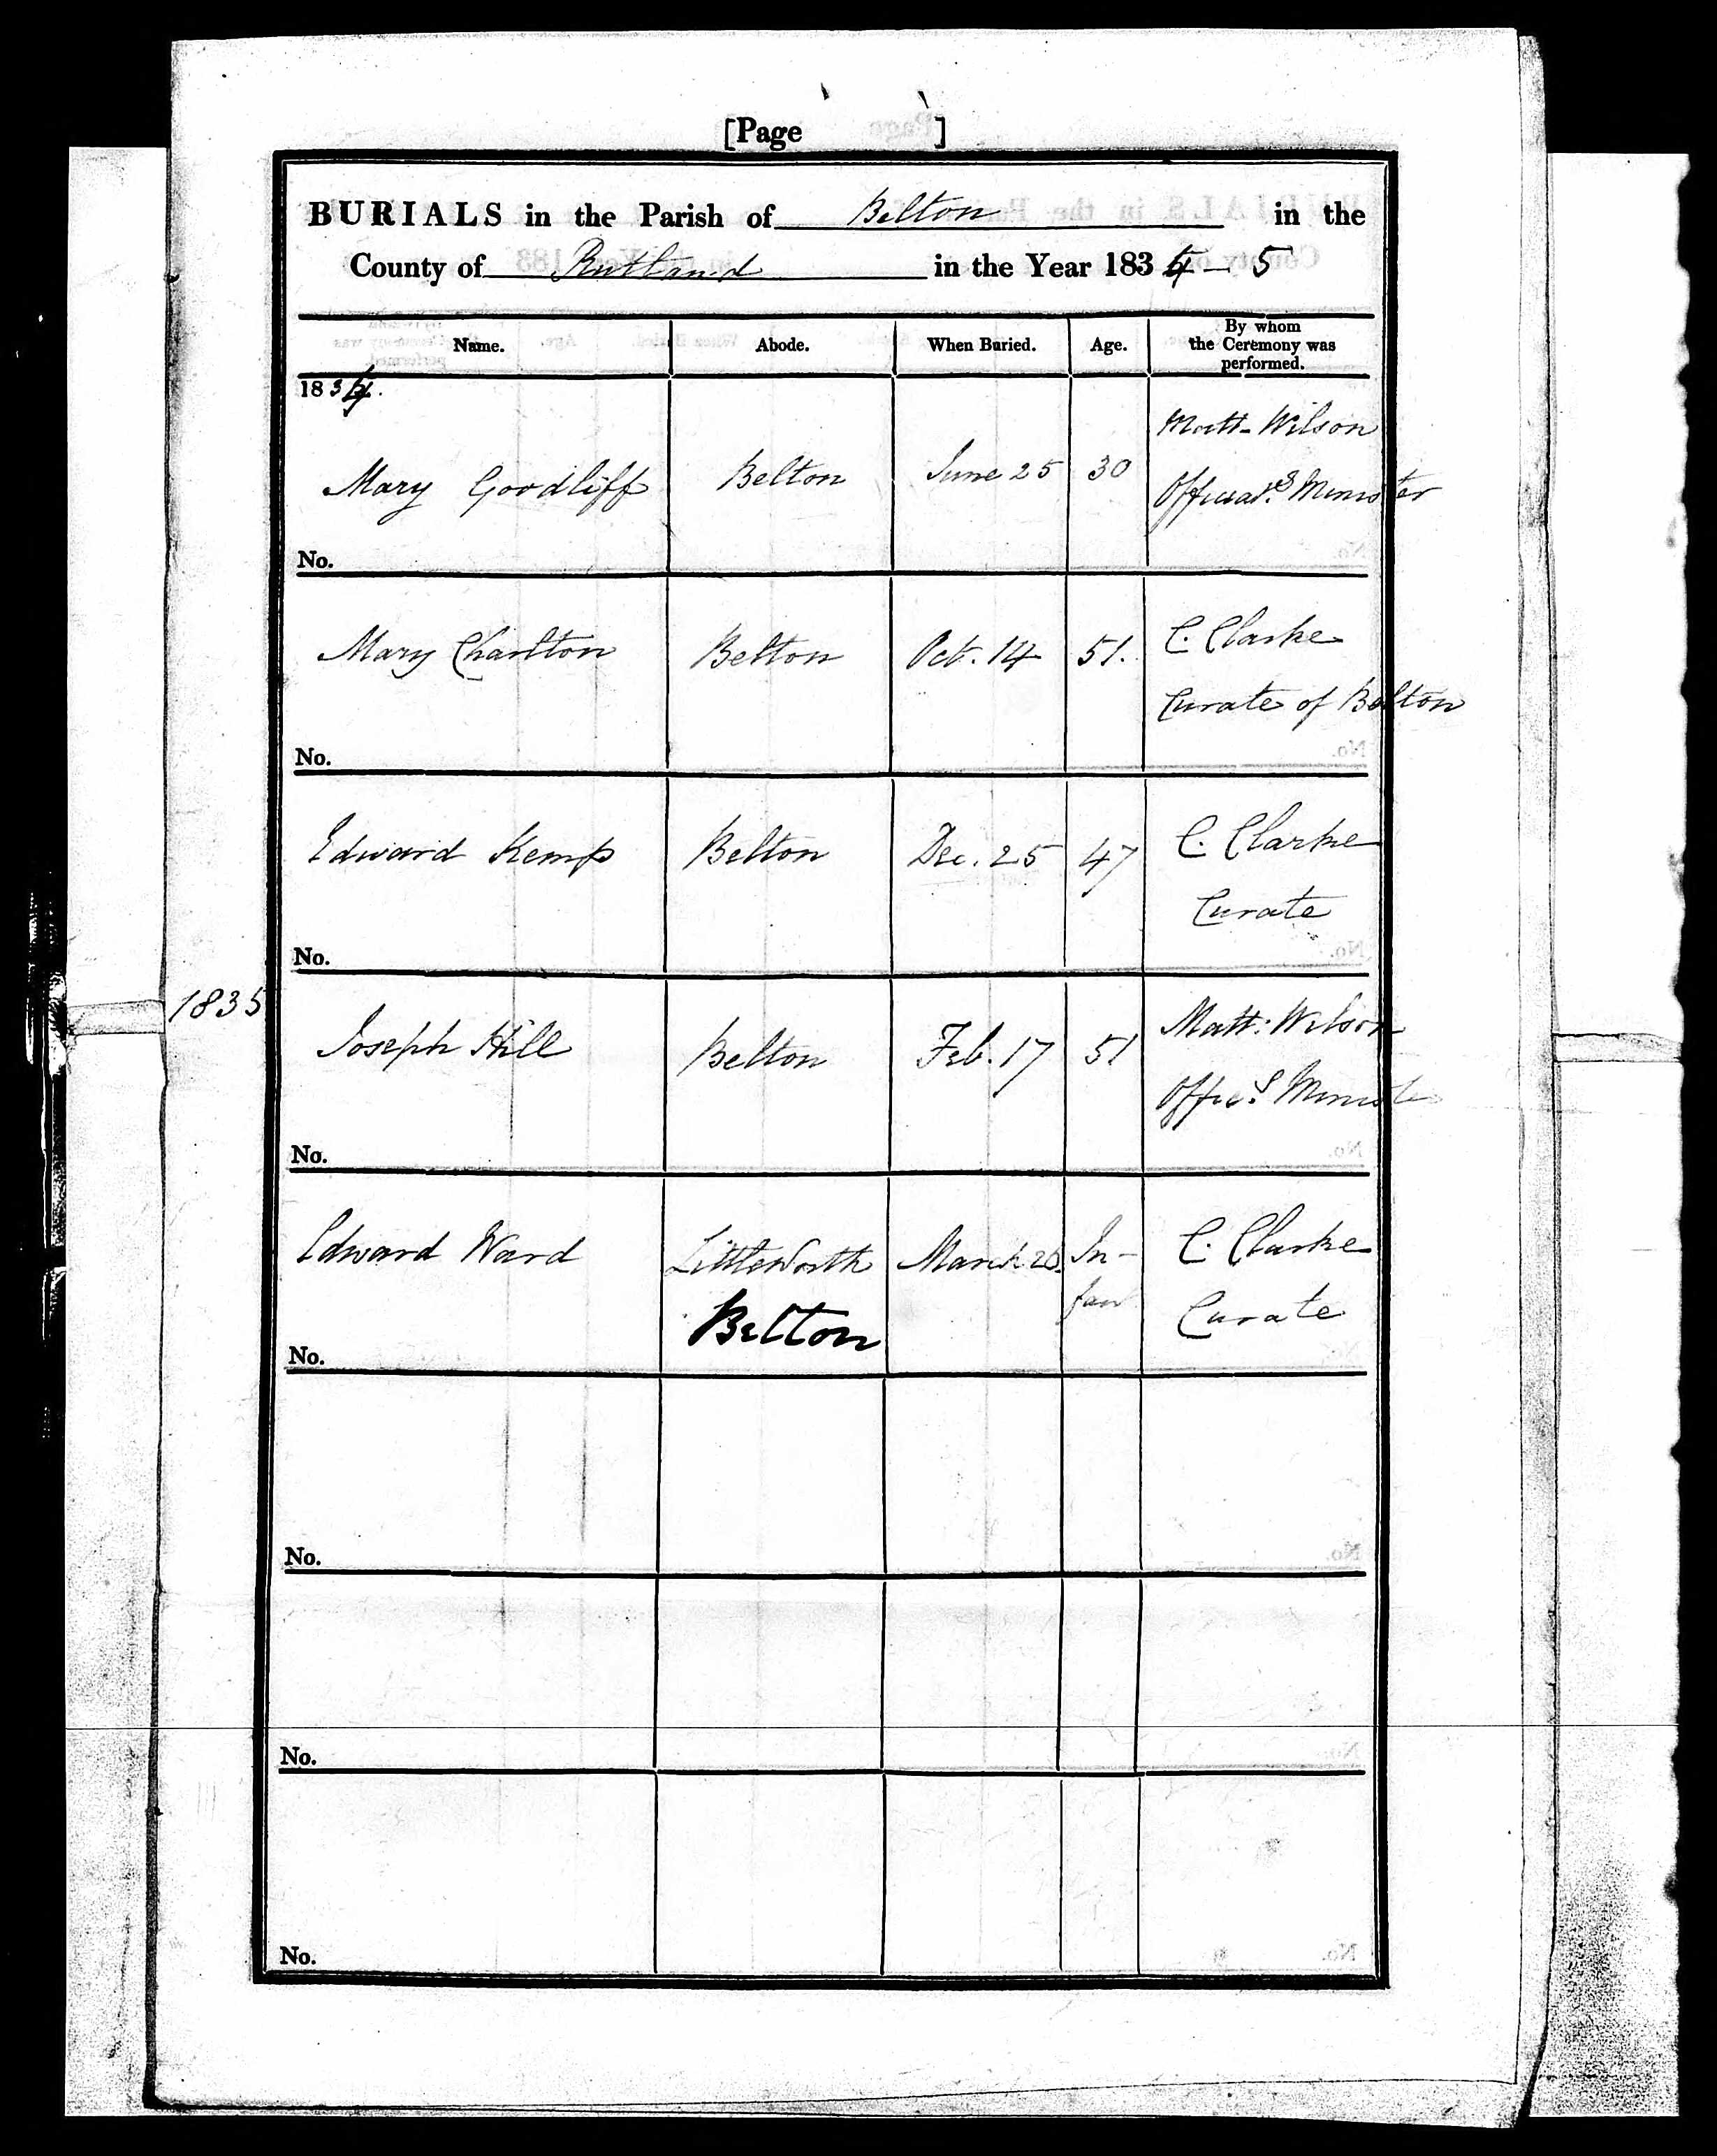 [Page ]
BURIALS in the Parish of Belton in the
County of Rutland in the Year 1834 – 5
Name. Abode. When Buried. Age. By whom the Ceremony was performed.
1834.
Mary Goodliff Belton June 25 30 Matt- Wilson
Officiat.g Minister
No.
Mary Charlton Belton Oct. 14 51. C. Clarke
Curate of Belton
No.
Edward Kemp Belton Dec. 25 47 C. Clarke
Curate
No.
1835
Joseph Hill Belton Feb. 17 51 Matt: Wilson
Offic.g Minister
No.
Edward Ward Littleworth March In- C. Clarke
Belton fant Curate
No.
No.
No.
No.